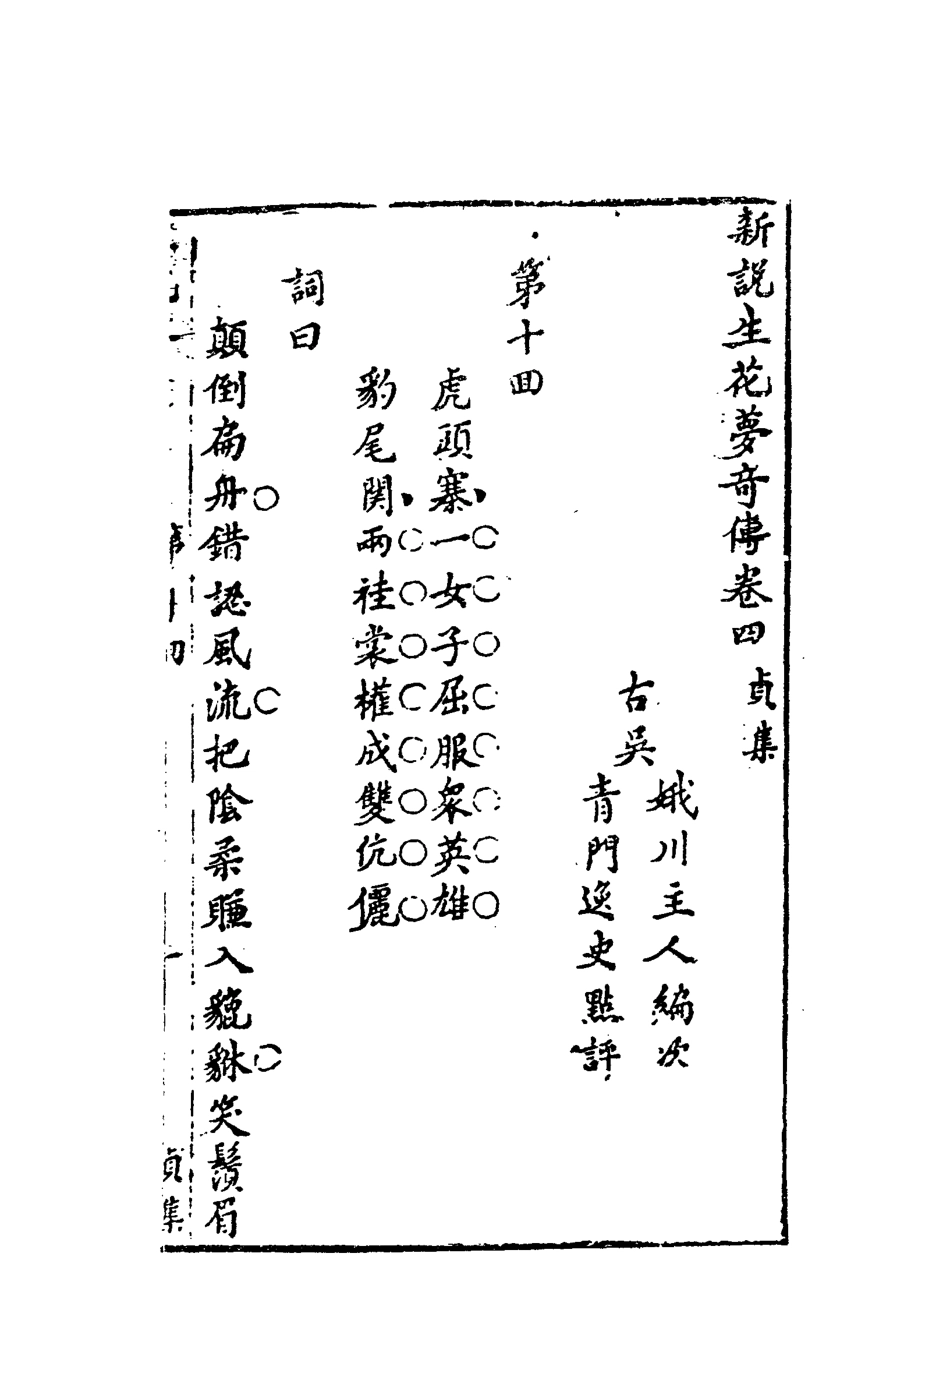 新說生花夢奇傳卷四　貞集
古吳
娥川主人編次
青門逸史點評
第十回
虎頭寨一女子屈服衆英雄
豹尾関兩袿裳權成雙伉儷
詞曰
顛倒扁舟錯認風流把陰柔賺入貔貅笑鬚眉
貞集